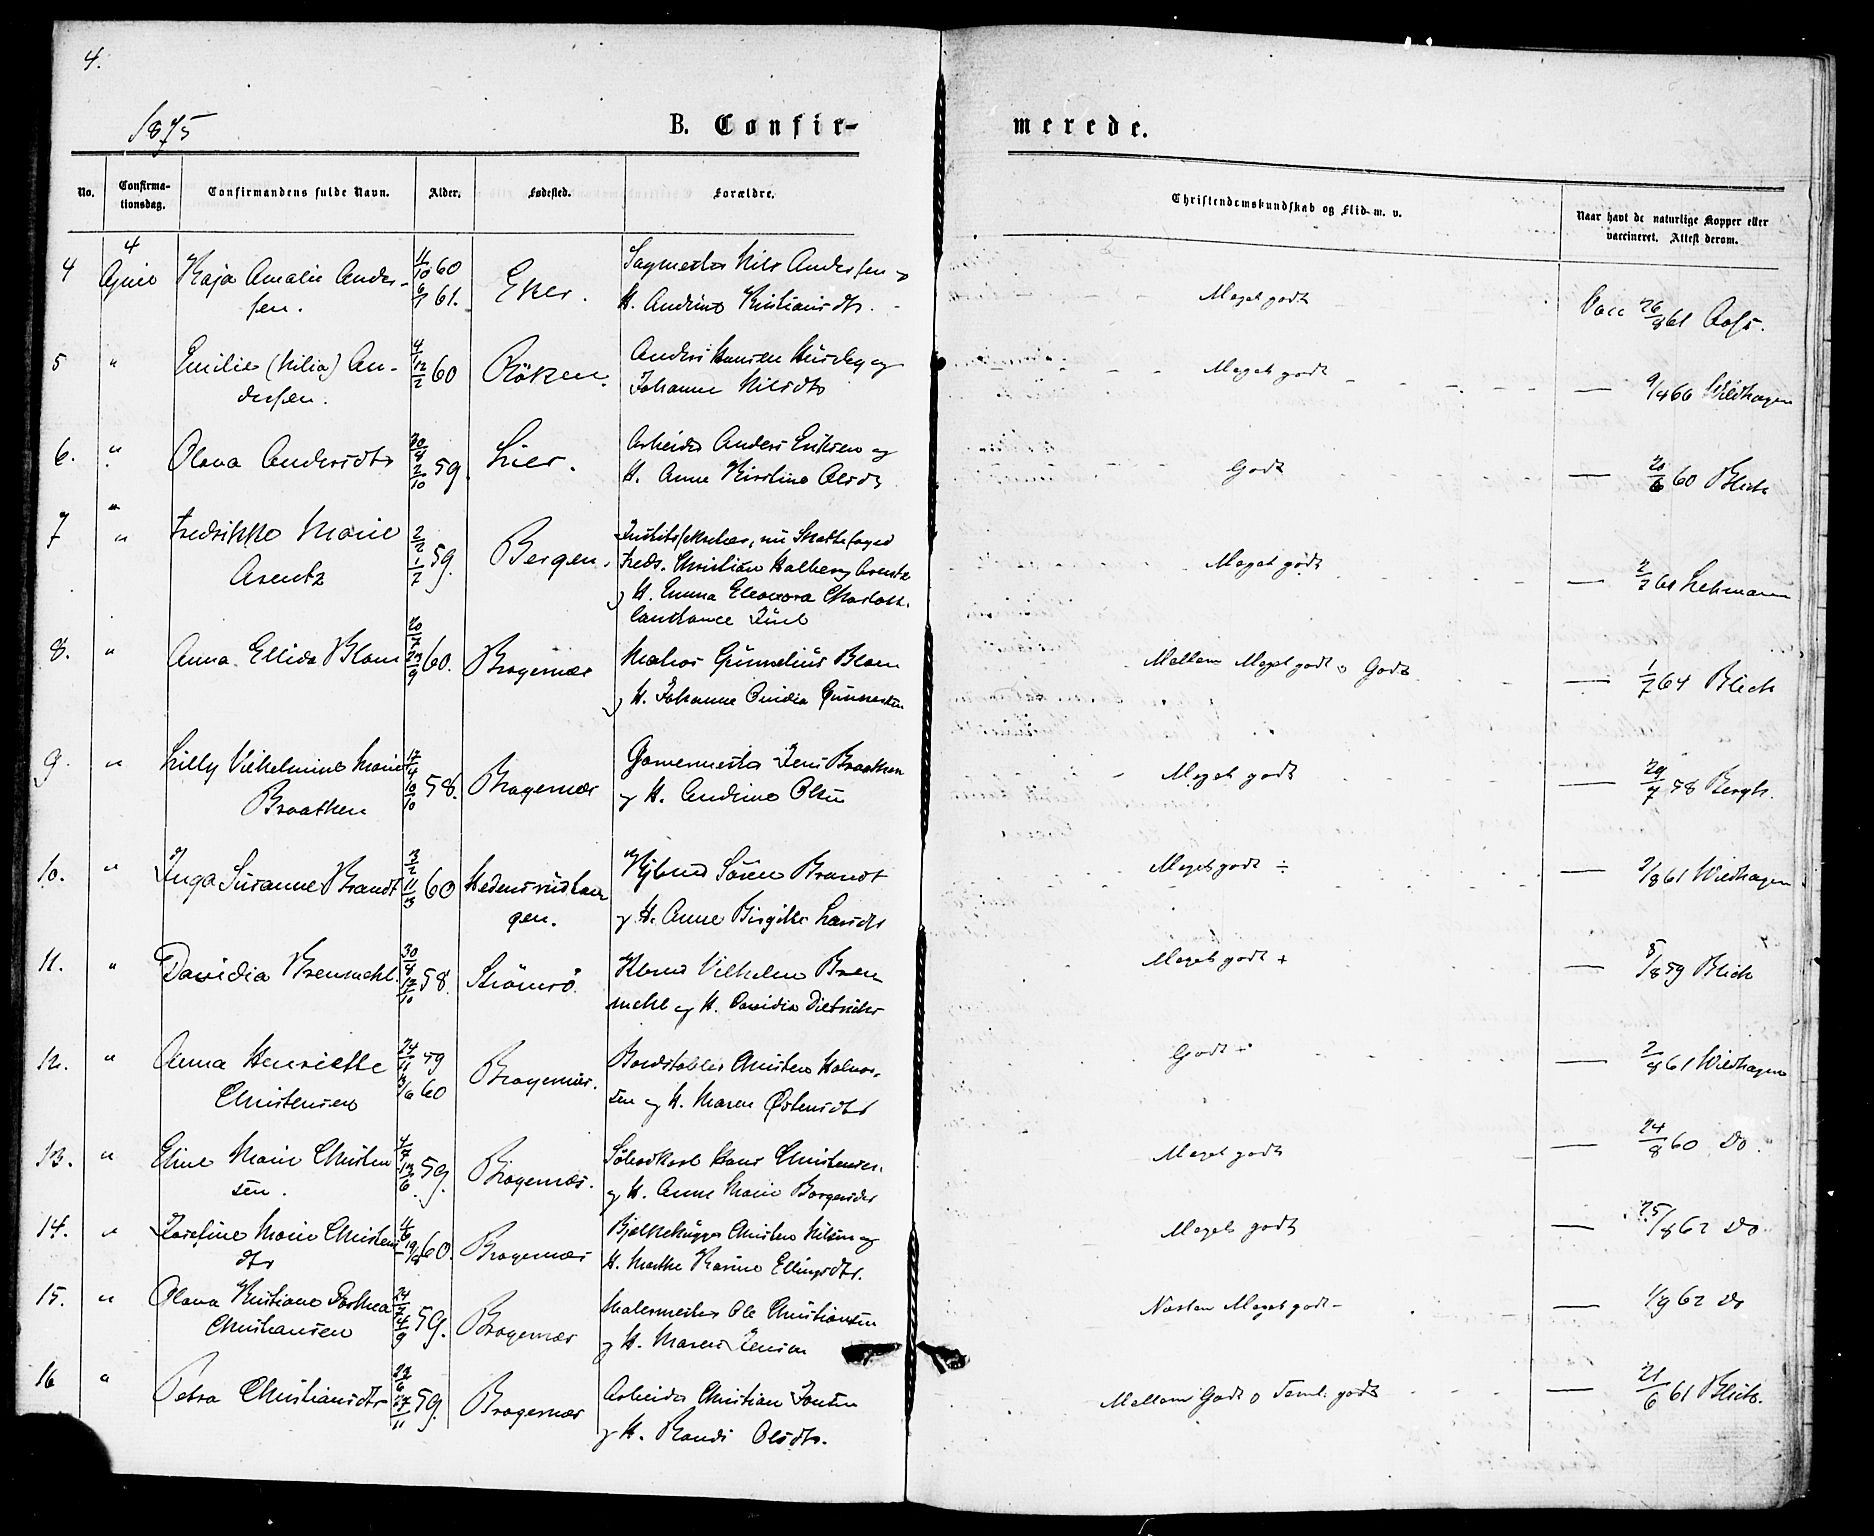 4.
1875
B. Confir-
merede.
No.
Confirma-
tionsdag.
Confirmandens fulde Navn.
Alder.
Fødested.
Forældre.
Christendomskundskab og Flid m. v.
Naar havt de naturlige Kopper eller
vaccineret. Attest derom.
4
4 April Kaja Amalie Ander-
sen.
11/10 60
6/1 61.
Eker.
Nils Andersen og
H. Andrine Kristiansdtr.
Meget godt
Vacc 26/8 61
5 " Emilie (Milia) An-
dersen.
4/12 12/2 60
Röken.
Anders Hansen og
Johanne Nilsdtr
Meget godt
— 9/4 66 Wildhagen
6. " Olava Andersdtr
30/8 2/10 59.
Lier.
Arbeider Anders Eriksen og
H. Anne Kirstine Olsdtr
Godt
— 20/6 60 Blich
7 " Fredrikke Marie
Arentz
2/2 1/7 59.
Bergen.
nu Skattefoged
Fredr. Christian Holberg Arentz
og H. Emma Eleonora Charlott.
Constance Juul
Meget godt
— 2/7 61 Lehmann
8. " Anna Ellida Blom
20/7 23/9 60.
Bragernæs
Matros Gunnelius Blom
og H. Johanne Ovidia
Mellem Meget godt o Godt
— 1/7 64 Blich
9. " Lilly Vilhelmine Marie
Braathen
17/4 10/10 58.
Bragernæs
Garvermester Jens Braathen
og H. Andrine Olsen
Meget godt
— 29/7 58 Bergh.
10. " Inga Susanne Brandt
3/2 11/3 60
gen.
Søren Brandt
og H. Anne Birgitte Larsdtr
Meget godt ÷
— 2/8 61 Wildhagen
11. " Davidia Bremehl.
30/8 17/10 58.
Strömsö
Vilhelm Bre
mehl og H. Davidia
Meget godt +
— 5/8 59 Blich
12. " Anna Henriette
Christensen
24/11 59
3/6 60
Bragernæs.
Bordstabler Christen Halvor-
sen og H. Maren Østensdtr
Godt ÷
— 2/8 61 Wildhagen
13. " Eline Marie Christen
sen.
4/4 13/6 59.
Bragernæs.
Hans Christensen
og H. Anne Marie Borgersdtr
Meget godt
— 24/8 60 Do.
14. " Josefine Marie Christens
dtr
60.
Bragernæs
Bjelkehugger Christen Nilsen og
H. Marthe Karine Ellingsdtr.
Meget godt
— 25/8 62 Do
15. " Olava Kristiane Dorthea
Christiansen
24/7 4/9 59.
Bragernæs
Malermester Ole Christiansen
og H. Maren Jensen
Næsten Meget godt -
— 1/9 62 Do
16 " Petra Christiansdtr
23/6 27/11 59.
Bragernæs
Arbeider Christian Jonsen
og H. Randi Olsdtr.
Mellem Godt o Teml. godt
— 21/6 61 Blich.